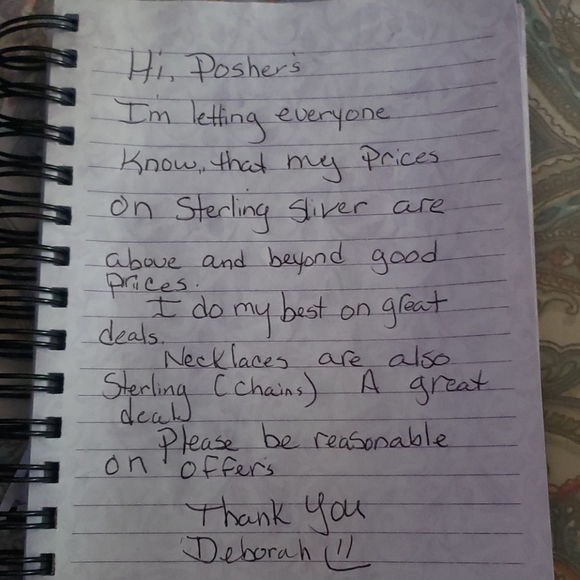 Hi, Posher's
I'm letting everyone
Know, that my Prices
on Sterling Sliver are
above and beyond good
prices.
I do my best on great
deals.
Necklaces are also
Sterling (Chains) A great
deal
Please be reasonable
on offers
Thank You
Deborah